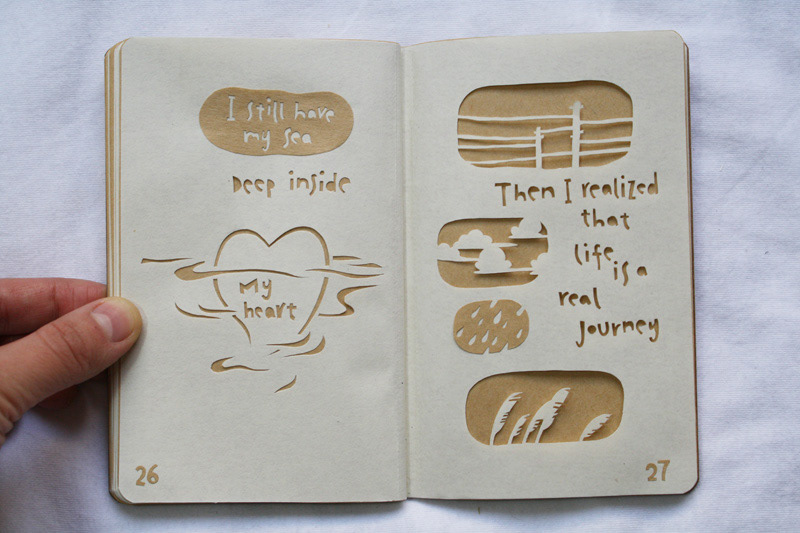 I still have
my sea
Deep inside
My
heart
26
Then I realized
that
life
is a
real
journey
27